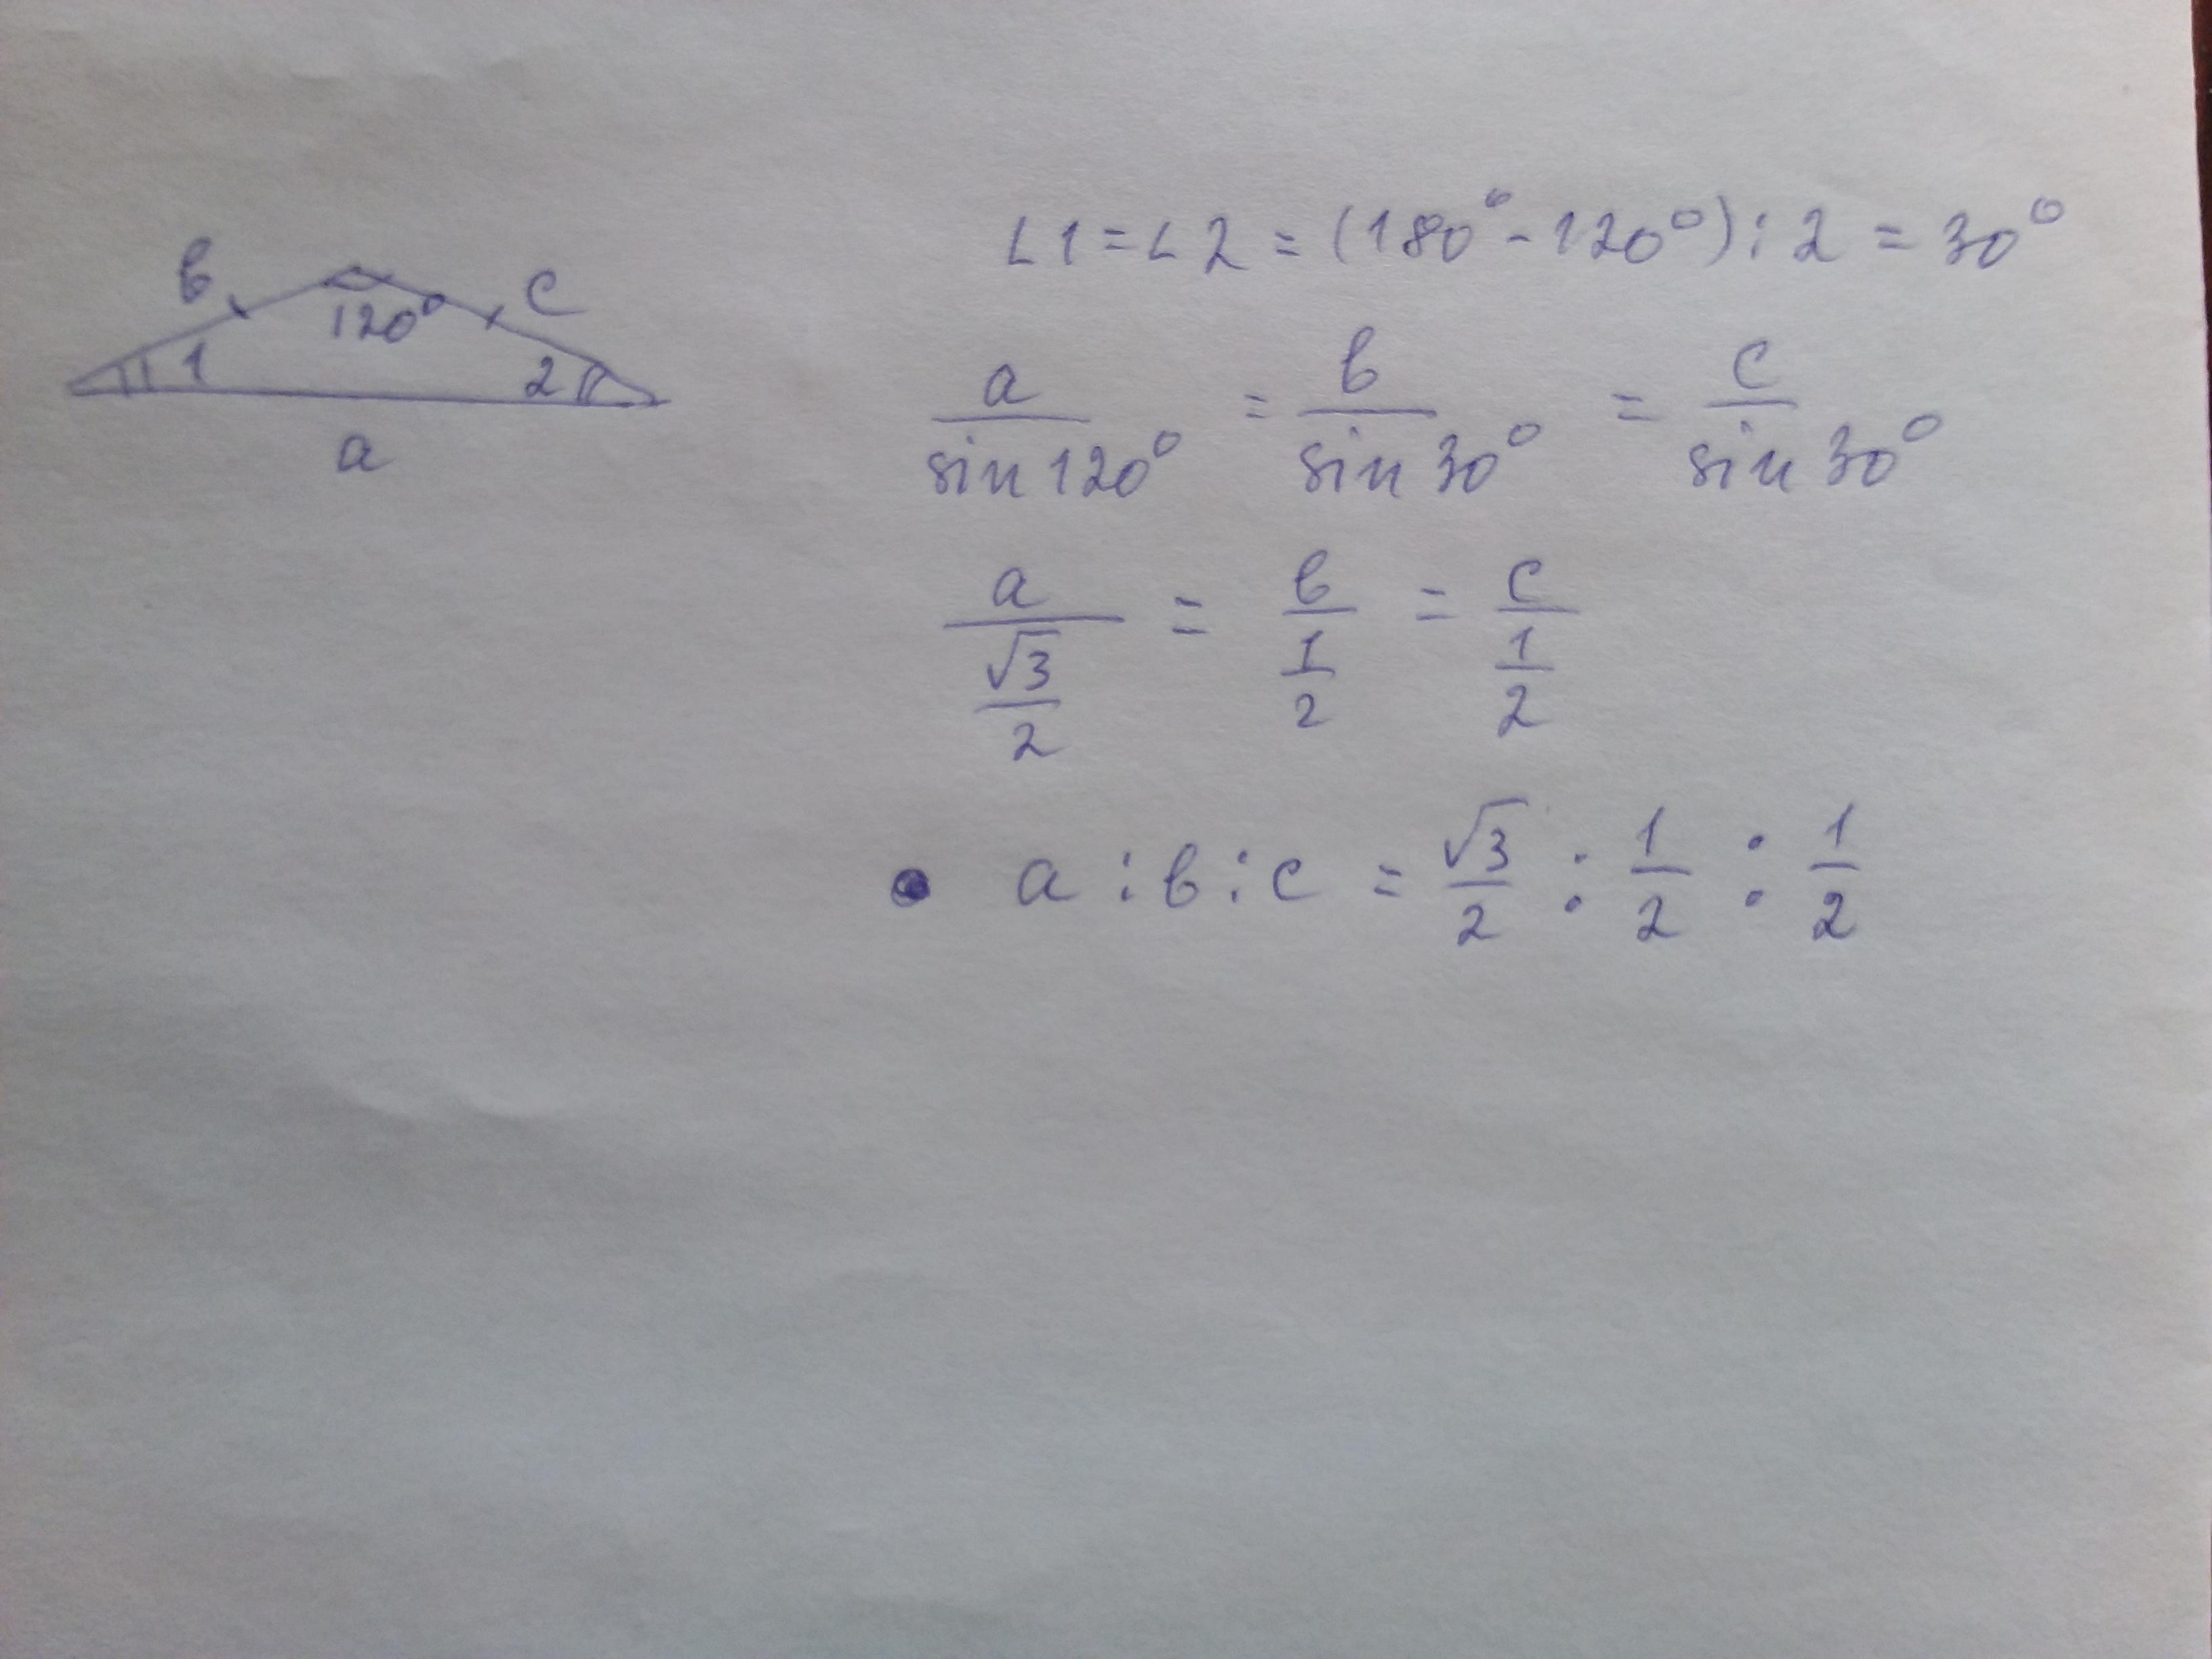 в 120° c
1 2
a
∠1 = ∠2 = (180° - 120°) : 2 = 30°
a/sin 120° = в/sin 30° = c/sin 30°
a/(√3/2) = в/(1/2) = c/(1/2)
• a : в : c = √3/2 : 1/2 : 1/2